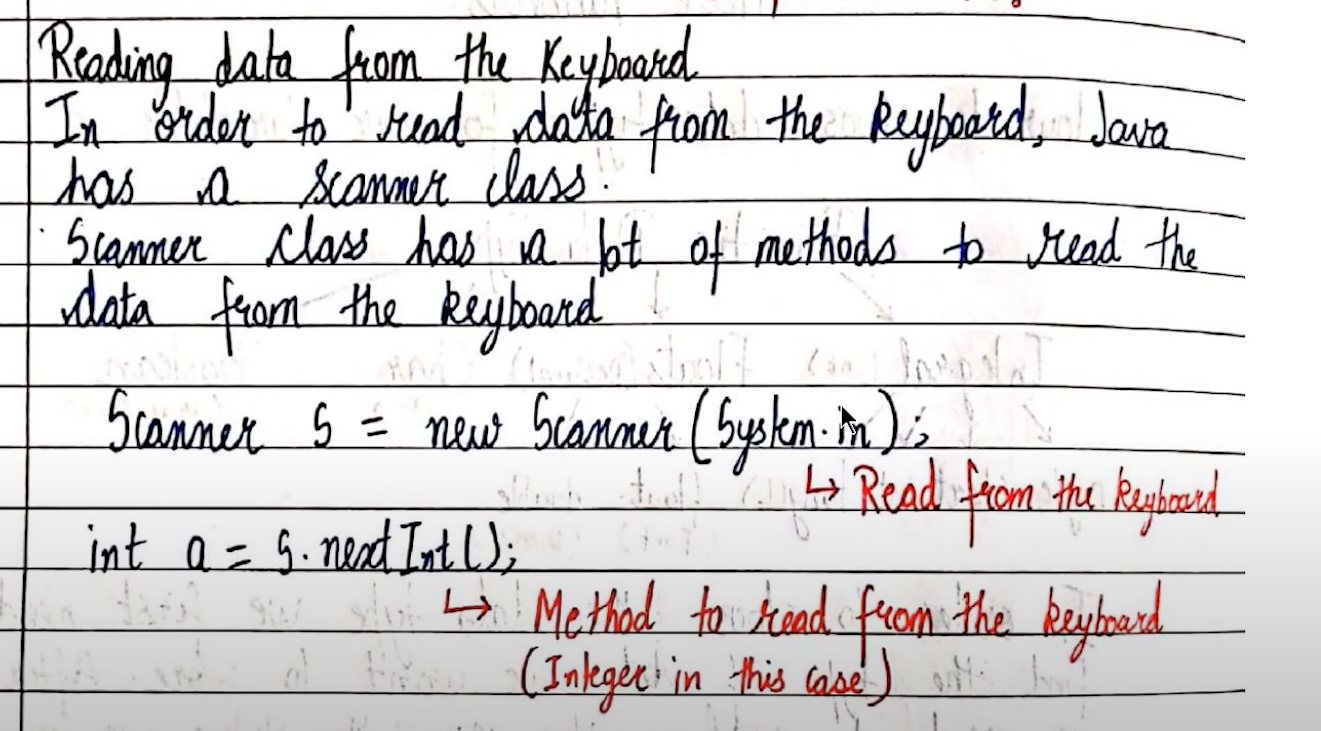 Reading data from the Keyboard
In order to read data from the keyboard, Java
has a scanner class.
Scanner class has a lot of methods to read the
data from the keyboard
Scanner S = new Scanner (System.in);
↳ Read from the keyboard
int a = S.nextInt();
↳ Method to read from the keyboard
(Integer in this case)